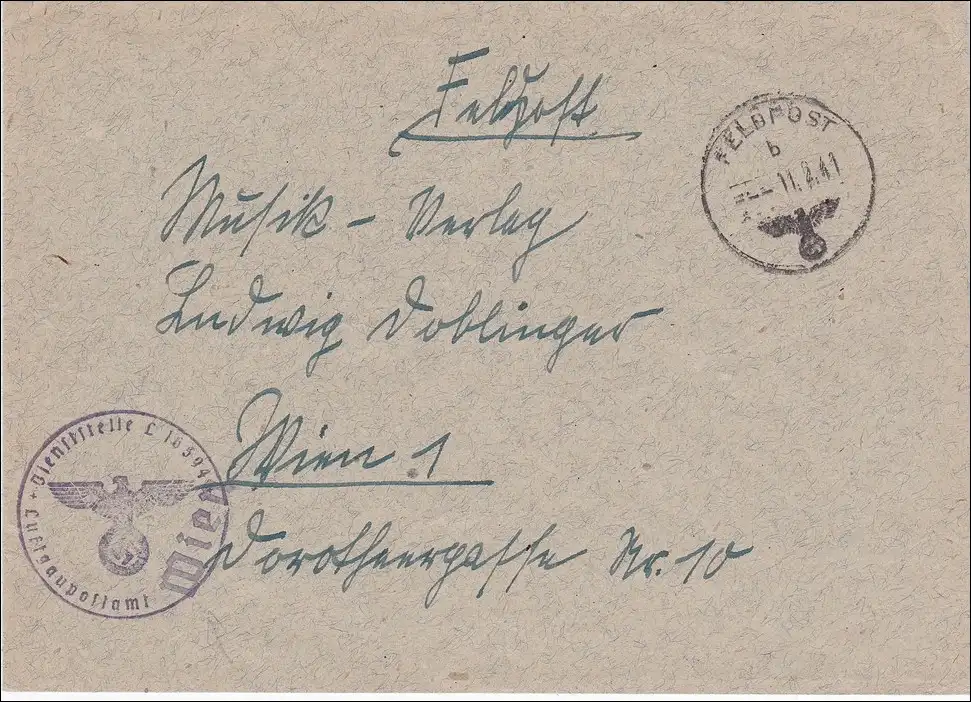 Feldpost
FELDPOST
b
11.2.41
Musik - Verlag
Ludwig Doblinger
Wien 1
Dorotheergasse Nr. 10
Dienststelle L 16394
Luftgaupostamt
Wien